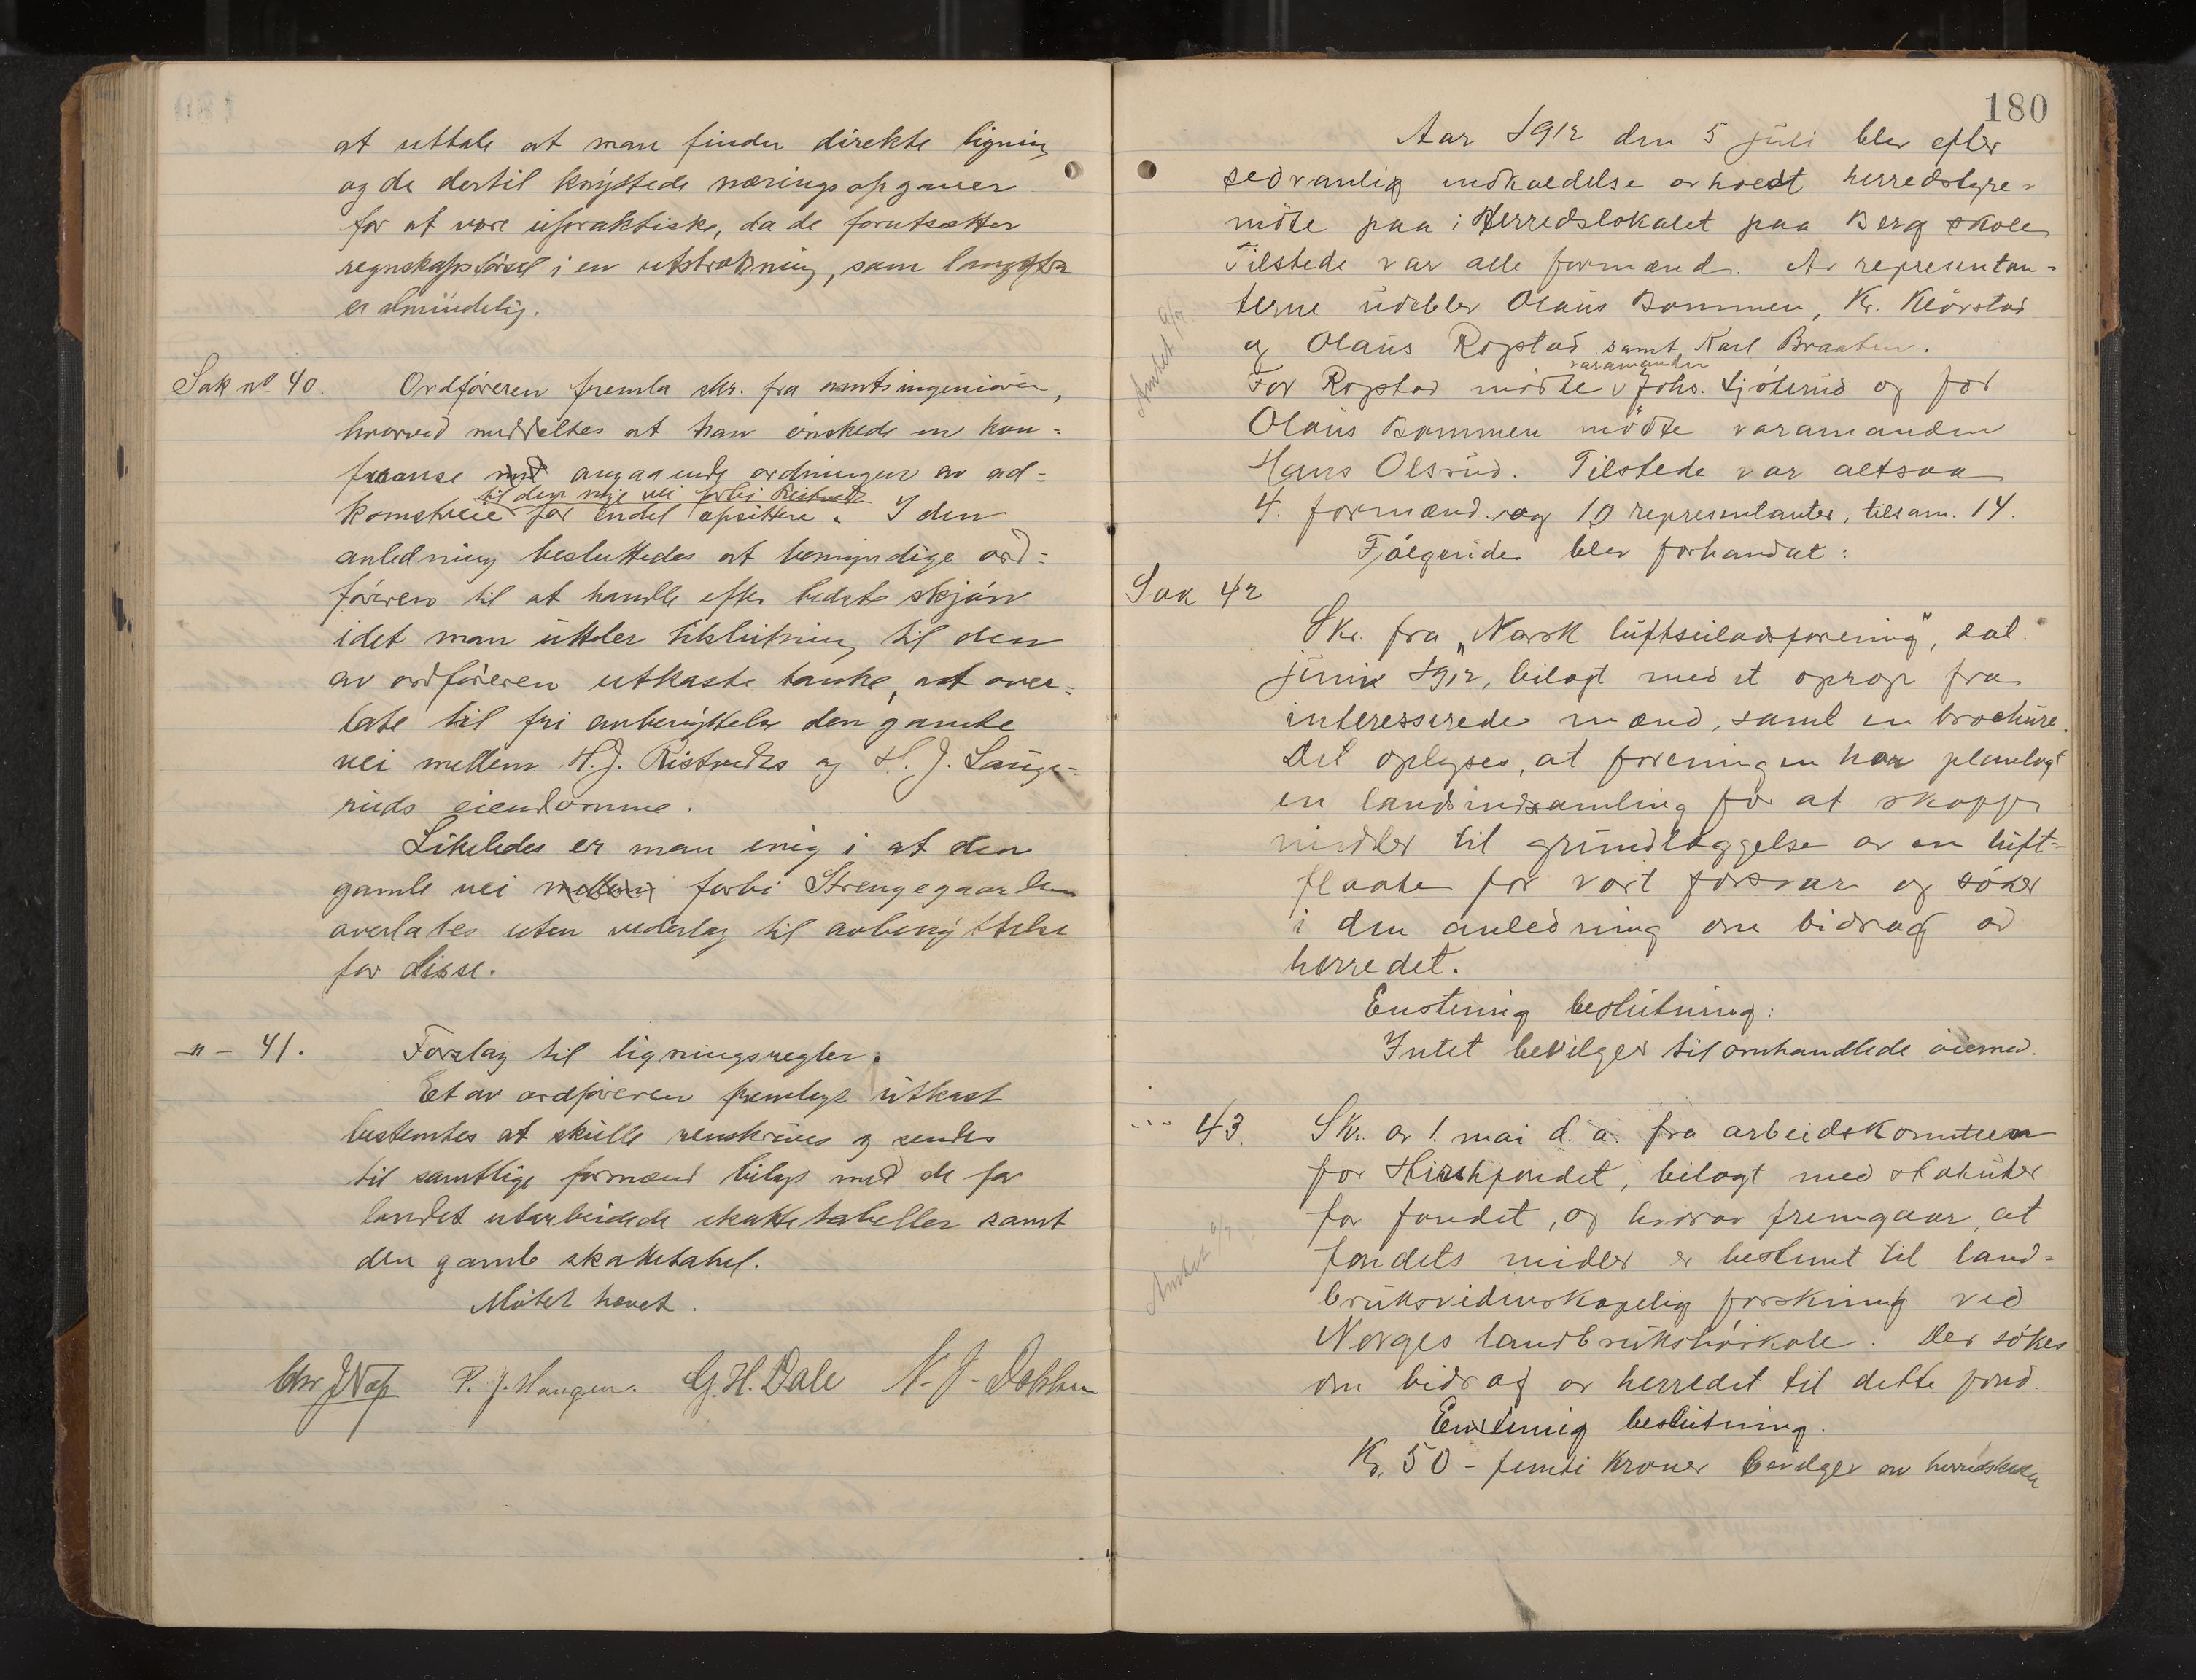 at uttale at man finder direkte ligning
og de dertil knyttede næringsopgaver
for at være upraktiske, da de forutsætter
regnskapsførsel i en utstrækning, som langtfra
er almindelig.
Sak no 40. Ordføreren fremla skr. fra amtsingeniøren,
hvorved meddeltes at han ønskede en kon-
feranse med angaaende ordningen av ad-
til den nye vei forbi Ristvedt
komstveie for endel opsittere. I den
anledning besluttedes at bemyndige ord-
føreren til at handle efter bedste skjøn
idet man uttaler tilslutning til den
av ordføreren utkaste tanke, at over-
late til fri avbenyttelse den gamle
vei mellem H.J. Ristvedts og H. J. Lauge-
ruds eiendomme.
Likeledes er man enig i at den
gamle vei mellem forbi Strengegaarden
overlates uten vederlag til avbenyttelse
for disse.
-"- 41. Forslag til ligningsregler.
Et av ordføreren fremlagt utkast
bestemtes at skulle renskrives og sendes
til samtlige formænd bilagt med de for
landet utarbeidede skattetabeller samt
den gamle skattetabel.
Møtet hævet.
Chr J Næp P. J. Haugen. G. H. Dale N. J. Dokken
180
Aar 1912 den 5 juli blev efter
sedvanlig indkaldelse avholdt herredstyre-
møte paa i Herredslokalet paa Berg skole
Tilstede var alle formænd. Av representan-
terne udeblev Olaus Bommen, Kr. Klørstad
og Olaus Ropstad samt Karl Braaten.
varamanden
For Ropstad mødte Johs. Ljøterud og for
Olaus Bommen mødte varamanden
Hans Olsrud. Tilstede var altsaa
4. formænd og 10 representanter, tilsam. 14.
Følgende blev forhandlet:
Sak 42
Skr. fra "Norsk luftseiladsforening", dat.
juni 1912, bilagt med et oprop fra
interesserede mænd, samt en brochure.
Det oplyses, at foreningen har planlagt
en landsindsamling for at skaffe
midler til grundlæggelse av en luft-
flaate for vort forsvar og søker
i den anledning om bidrag av
herredet.
Enstemig beslutning:
Intet bevilges til omhandlede øiemed.
Amtet 6/7
--- 43. Skr. av 1. mai d. a. fra arbeidskomiteen
for Hirschfondet, bilagt med statuter
for fondet, og hvorav fremgaar, at
fondets midler er bestemt til land-
bruksvidenskapelig forskning ved
Norges landbrukshøiskole. Der søkes
om bidrag av herredet til dette fond.
Enstemig beslutning.
Kr. 50 - femti kroner bevilges av herredskassen
Amtet 6/7